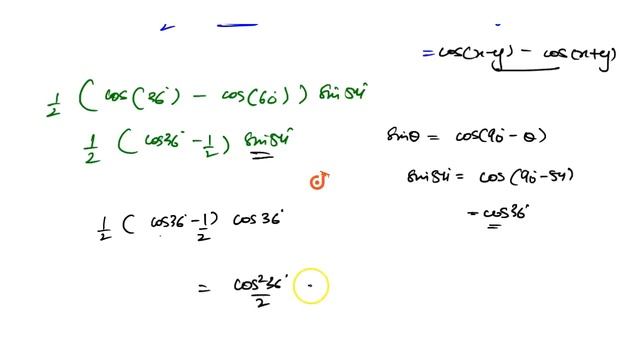 = cos(x-y) - cos(x+y)
1/2 ( cos(36°) - cos(60°) ) sin54°
1/2 ( cos36° - 1/2 ) sin54°
sinθ = cos(90° - θ)
sin54° = cos (90° - 54)
= cos36°
1/2 ( cos36° - 1/2 ) cos36°
= cos²36°/2 -